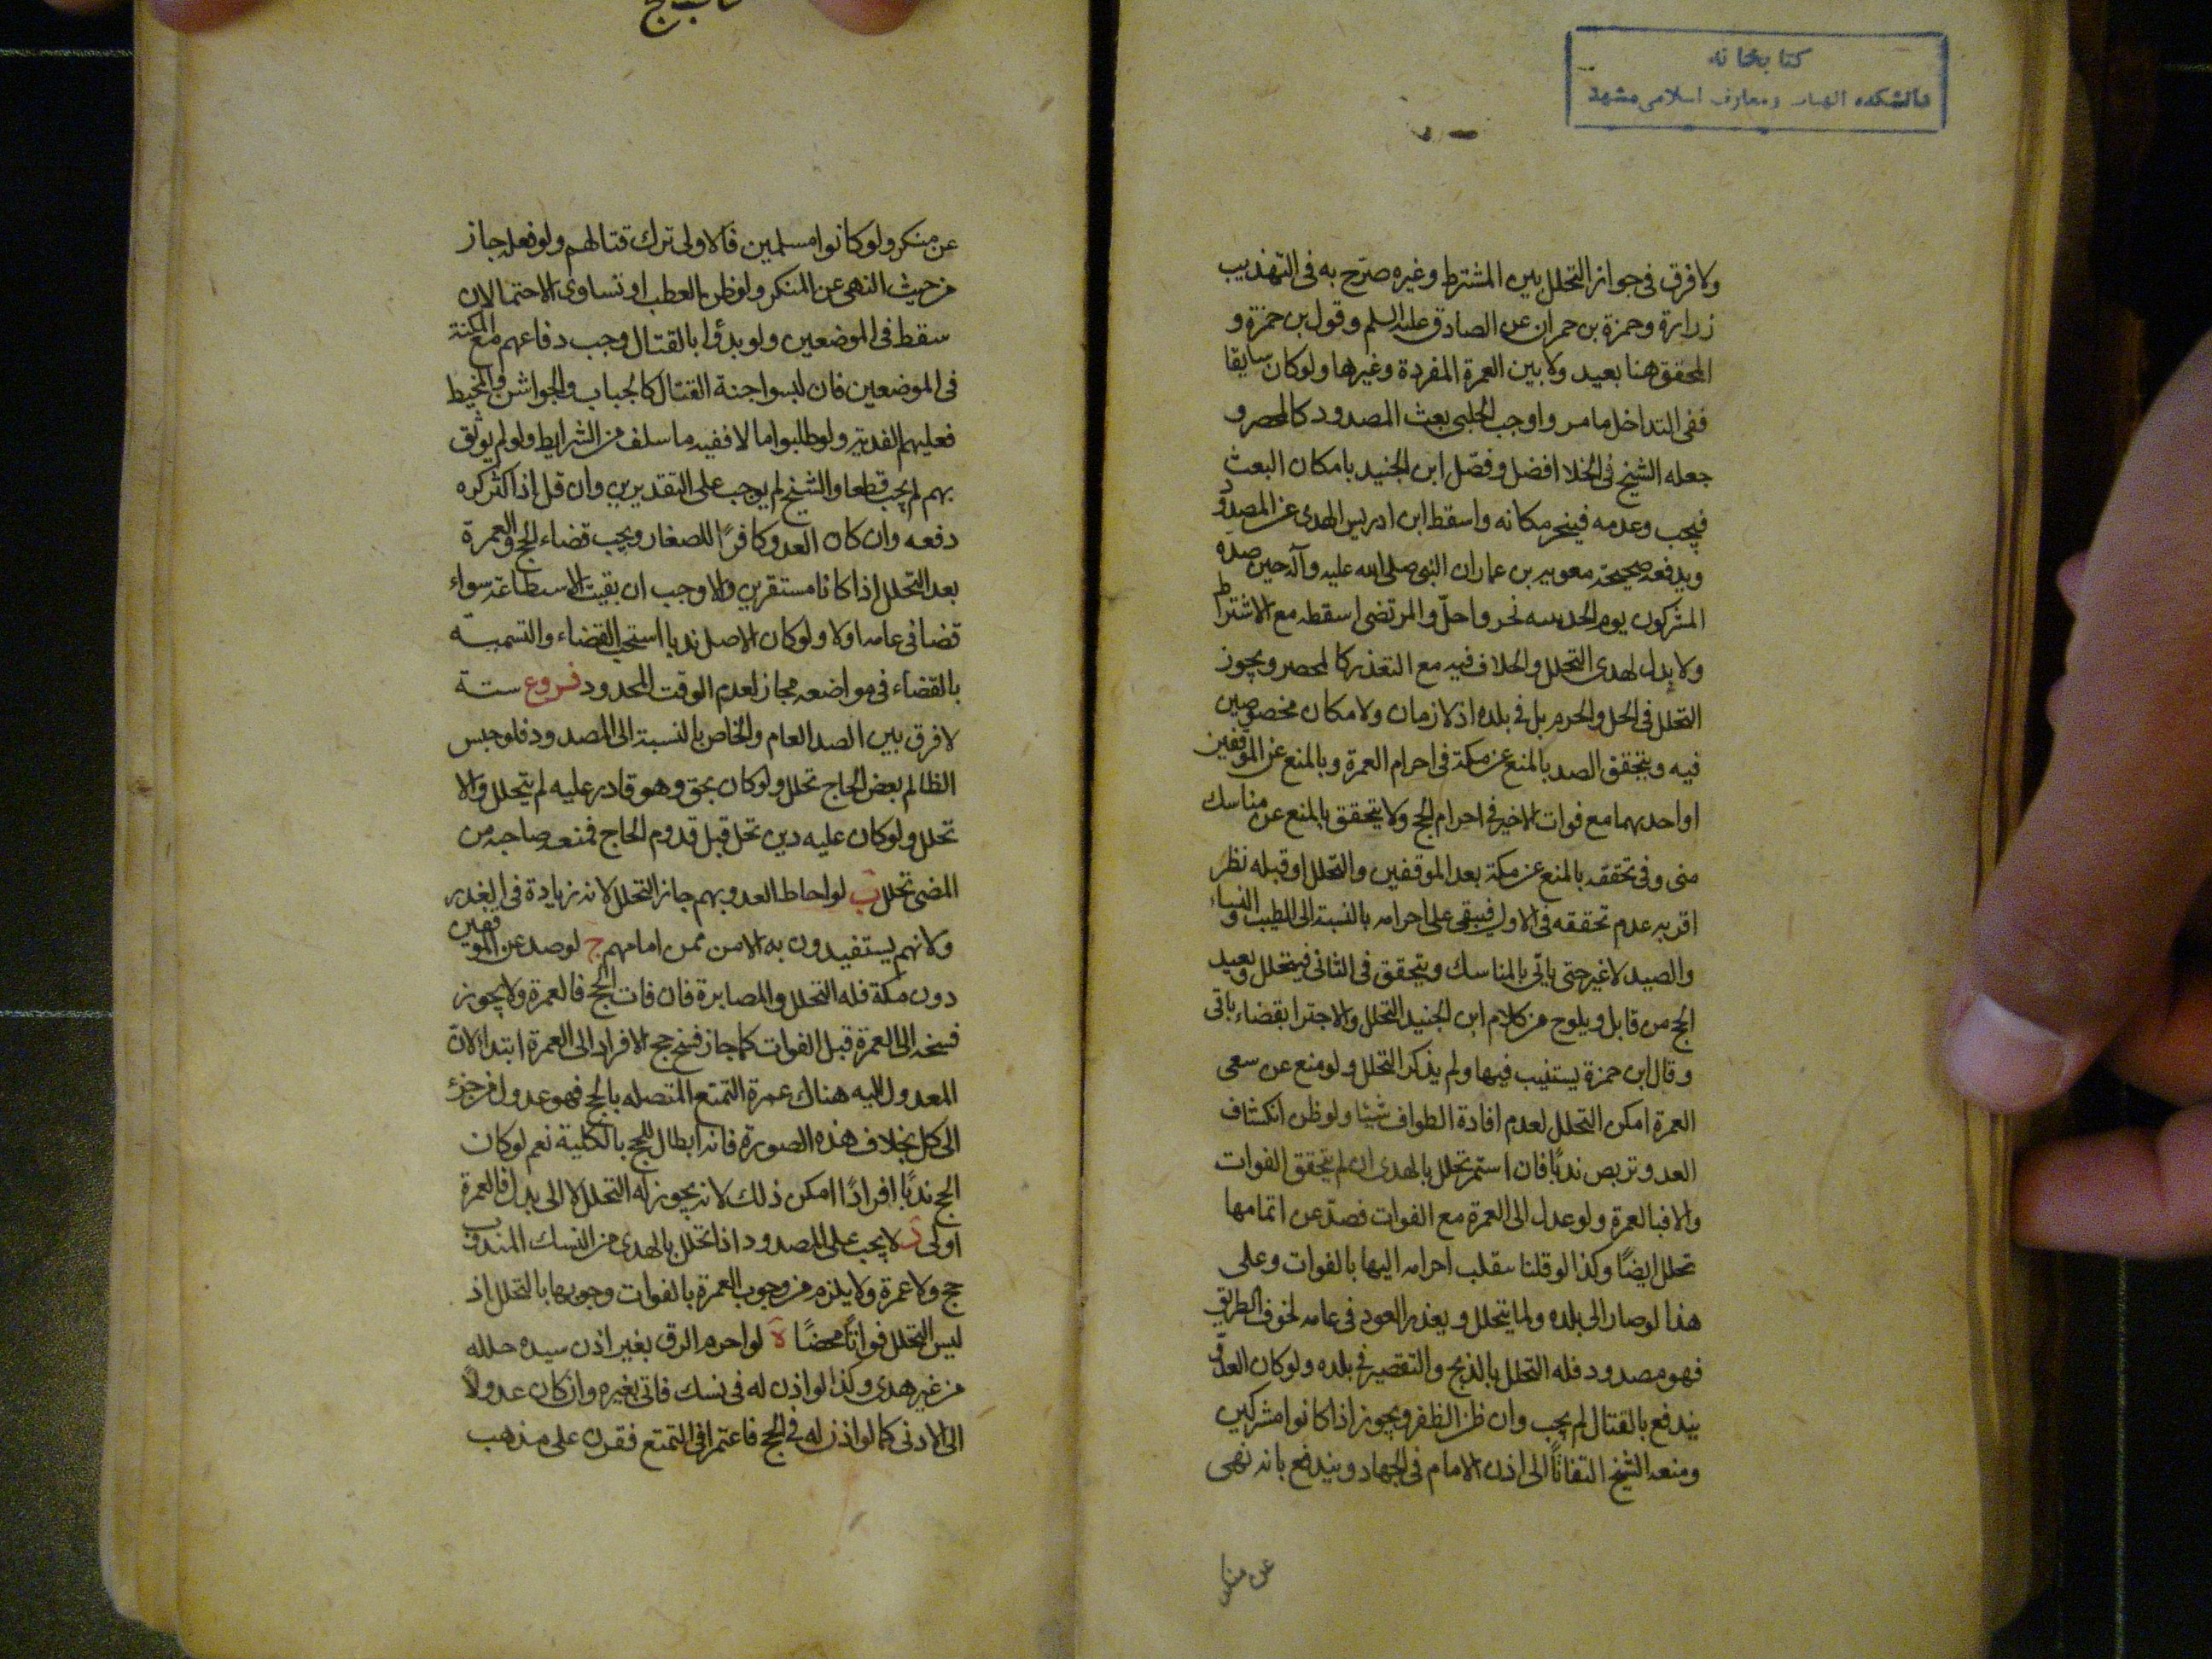 كتابخانه
دانشكده الهيات ومعارف اسلامى مشهد
ولا فرق فى جواز التحلل بين المشترط وغيره صرّح به فى التهذيب
زرارة وحمزة بن حمران عن الصادق عليه السلم وقول بن حمزة و
المحقق هنا بعيد ولا بين العمرة المفردة وغيرها ولو كان سايقا
ففى التداخل ما مر واوجب الحلبى بعث المصدود كالمحصر و
جعله الشيخ فى الخلا افضل وفصّل ابن الجنيد بامكان البعث
فيجب وعدمه فينحر مكانه واسقط ابن ادريس الهدى عن المصدود
ويدفعه صحيحة معوية بن عمار ان النبى صلى الله عليه وآله حين صدّه
المشركون يوم الحديبيه نحر واحلّ والمرتضى اسقطه مع الاشتراط
ولا بدل لهدى التحلل والخلاف فيه مع التعذر كالمحصر ويجوز
التحلل فى الحل والحرم بل فى بلده اذ لا زمان ولا مكان مخصوصين
فيه ويتحقق الصد بالمنع عن مكة فى احرام العمرة وبالمنع عن الموقفين
او احدهما مع فوات الاخير فى احرام الحج ولا يتحقق بالمنع عن مناسك
منى وفى تحققه بالمنع عن مكة بعد الموقفين والتحلل او قبله نظر
اقربه عدم تحققه فى الاول فيبقى على احرامه بالنسبة الى الطيب والنساء
والصيد لا غير حتى ياتى بالمناسك ويتحقق فى الثانى فيتحلل ويعيد
الحج من قابل ويلوح من كلام ابن الجنيد التحلل والاجتزا بقضاء باقى
وقال ابن حمزة يستنيب فيها ولم يذكر التحلل ولو منع عن سعى
العمرة امكن التحلل لعدم افادة الطواف شيئا ولو ظن انكشاف
العدو تربص ندبًا فان استمر تحلل بالهدى ان لم يتحقق الفوات
والا فبالعمرة ولو عدل الى العمرة مع الفوات فصدّ عن اتمامها
تحلل ايضًا وكذا لو قلنا ينقلب احرامه اليها بالفوات وعلى
هذا لو صار الى بلده ولما يتحلل ويعذر العود فى عامه لخوف الطريق
فهو مصدود فله التحلل بالذبح والتقصير فى بلده ولو كان العدو
يندفع بالقتال لم يجب وان ظن الظفر ويجوز اذا كانوا مشركين
ومنعه الشيخ التفاتًا الى اذن الامام فى الجهاد ويندفع بانه نهى
عن منكر
كتاب الحج
عن منكر ولو كانوا مسلمين فالاولى ترك قتالهم ولو فعله جاز
من حيث النهى عن المنكر ولو ظن العطب او تساوى الاحتمالان
سقط فى الموضعين ولو بدؤا بالقتال وجب دفاعهم مع المكنة
فى الموضعين فان لبسوا جنة القتال كالجباب والجواشن والمخيط
فعليهم الفدية ولو طلبوا مالا ففيه ما سلف من الشرايط ولو لم يوثق
بهم لم يجب قطعا والشيخ لم يوجب على التقديرين وان قل اذا كثر كره
دفعه وان كان العدو كافرًا للصغار ويجب قضاء الحج والعمرة
بعد التحلل اذا كانا مستقرين والا وجب ان بقيت الاستطاعة سواء
قضا فى عامه اولا ولو كان الاصل ندبا استحب القضاء والتسمية
بالقضاء فى مواضعه مجاز لعدم الوقت المحدود فروع ستة
لا فرق بين الصد العام والخاص بالنسبة الى المصدود فلو حبس
الظالم بعض الحاج تحلل ولو كان بحق وهو قادر عليه لم يتحلل والا
تحلل ولو كان عليه دين تحل قبل قدوم الحاج فمنعه صاحبه من
المضى تحلل ب لو احاط العدو بهم جاز التحلل لانه زيادة فى العذر
ولانهم يستفيدون به الامن ممن امامهم ج لو صد عن الموقفين
دون مكة فله التحلل والمصابرة فان فات الحج فالعمرة ولا يجوز
فسخه الى العمرة قبل الفوات كما جاز فسخ حج الافراد الى العمرة ابتداء لان
المعدول اليه هناك عمرة التمتع المتصله بالحج فهو عدول من جزء
الى كل بخلاف هذه الصورة فانه ابطال للحج بالكلية نعم لو كان
الحج ندبًا افرادًا امكن ذلك لانه يجوز له التحلل لا الى بدل فالعمرة
اولى د لا يجب على المصدود اذا تحلل بالهدى من النسك المندوب
حج ولا عمرة ولا يلزم من وجوب العمرة بالفوات وجوبها بالتحلل اذ
ليس التحلل فواتًا محضًا ه لو احرم الرق بغير اذن سيده حلله
من غير هدى وكذا لو اذن له فى نسك فاتى بغيره وان كان عدولًا
الى الادنى كما لو اذن له فى الحج فاعتمر او فى التمتع فقرن على مذهب